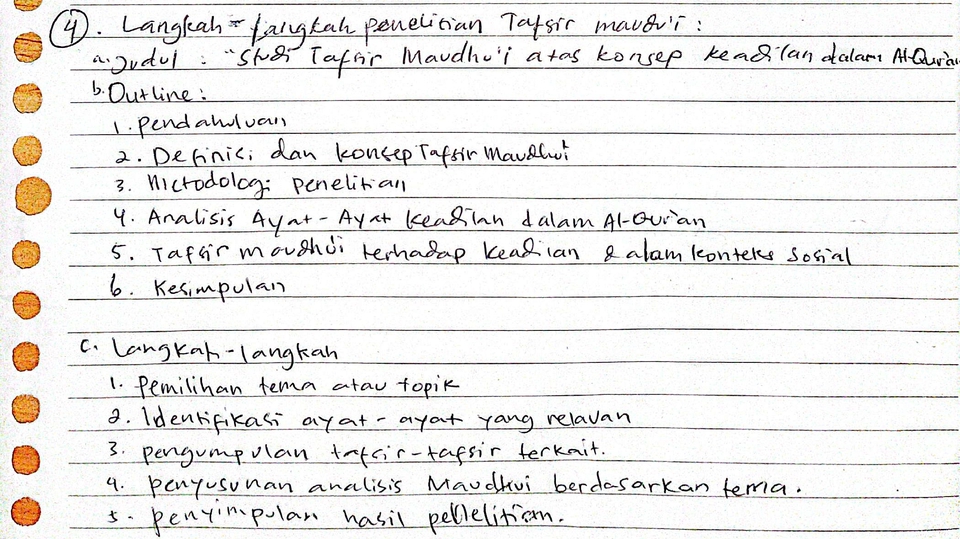 4. Langkah-langkah penelitian Tafsir maudu'i :
a. Judul : "Studi Tafsir Maudhu'i atas konsep keadilan dalam Al-Qur'an
b. Outline :
1. pendahuluan
2. Definisi dan konsep Tafsir Maudhu'i
3. Metodologi penelitian
4. Analisis Ayat-Ayat keadilan dalam Al-Qur'an
5. Tafsir maudhu'i terhadap keadilan dalam konteks sosial
6. Kesimpulan
c. Langkah-langkah
1. Pemilihan tema atau topik
2. Identifikasi ayat-ayat yang relavan
3. pengumpulan tafsir-tafsir terkait.
4. penyusunan analisis Maudhui berdasarkan tema.
5. penyimpulan hasil penelitian.